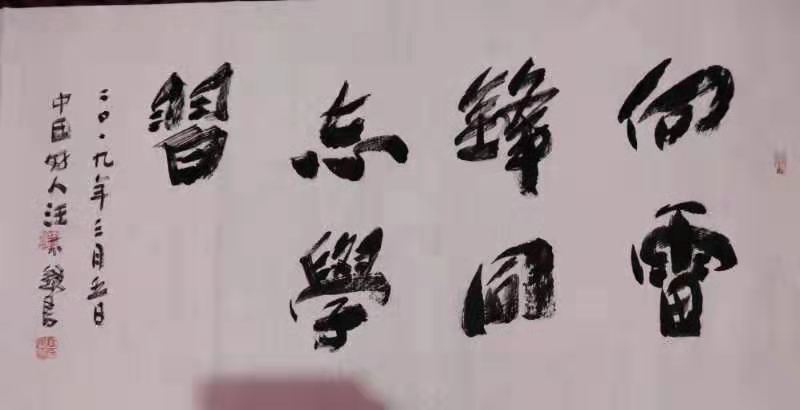 向雷
鋒同
志學
習
二〇一九年三月五日
中国 人汪